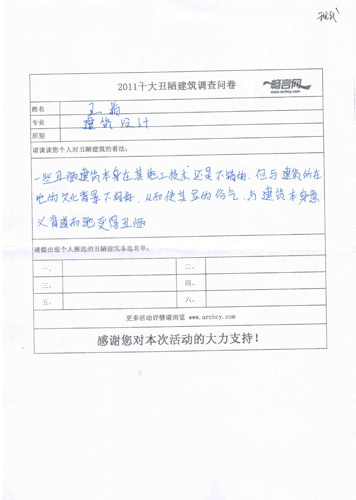 2011十大丑陋建筑调查问卷
畅言网
www.archcy.com
姓名
专业 建筑设计
所别
请谈谈您个人对丑陋建筑的看法：
一些丑陋建筑本身在其施工技术还是不错的，但与建筑所在
地的文化背景不相符，从而使其显的俗气，与建筑本身意
义背道而驰变得丑陋
请提出您个人推选的丑陋建筑备选名单：
一、 二、
三、 四、
五、 六、
更多活动详情请浏览 www.archcy.com
感谢您对本次活动的大力支持！